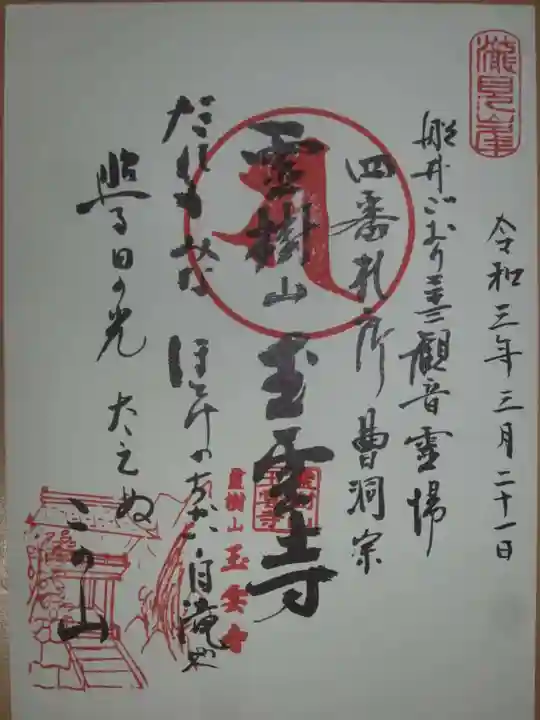 瀧見峯
令和三年三月二十一日
船井ごおり三十三觀音靈場
四番札所 曹洞宗
霊樹山 玉雲寺
靈樹山 玉雲寺
だれもみな ほとけのちかい 白滝や
照る日の光 たえぬ
この山